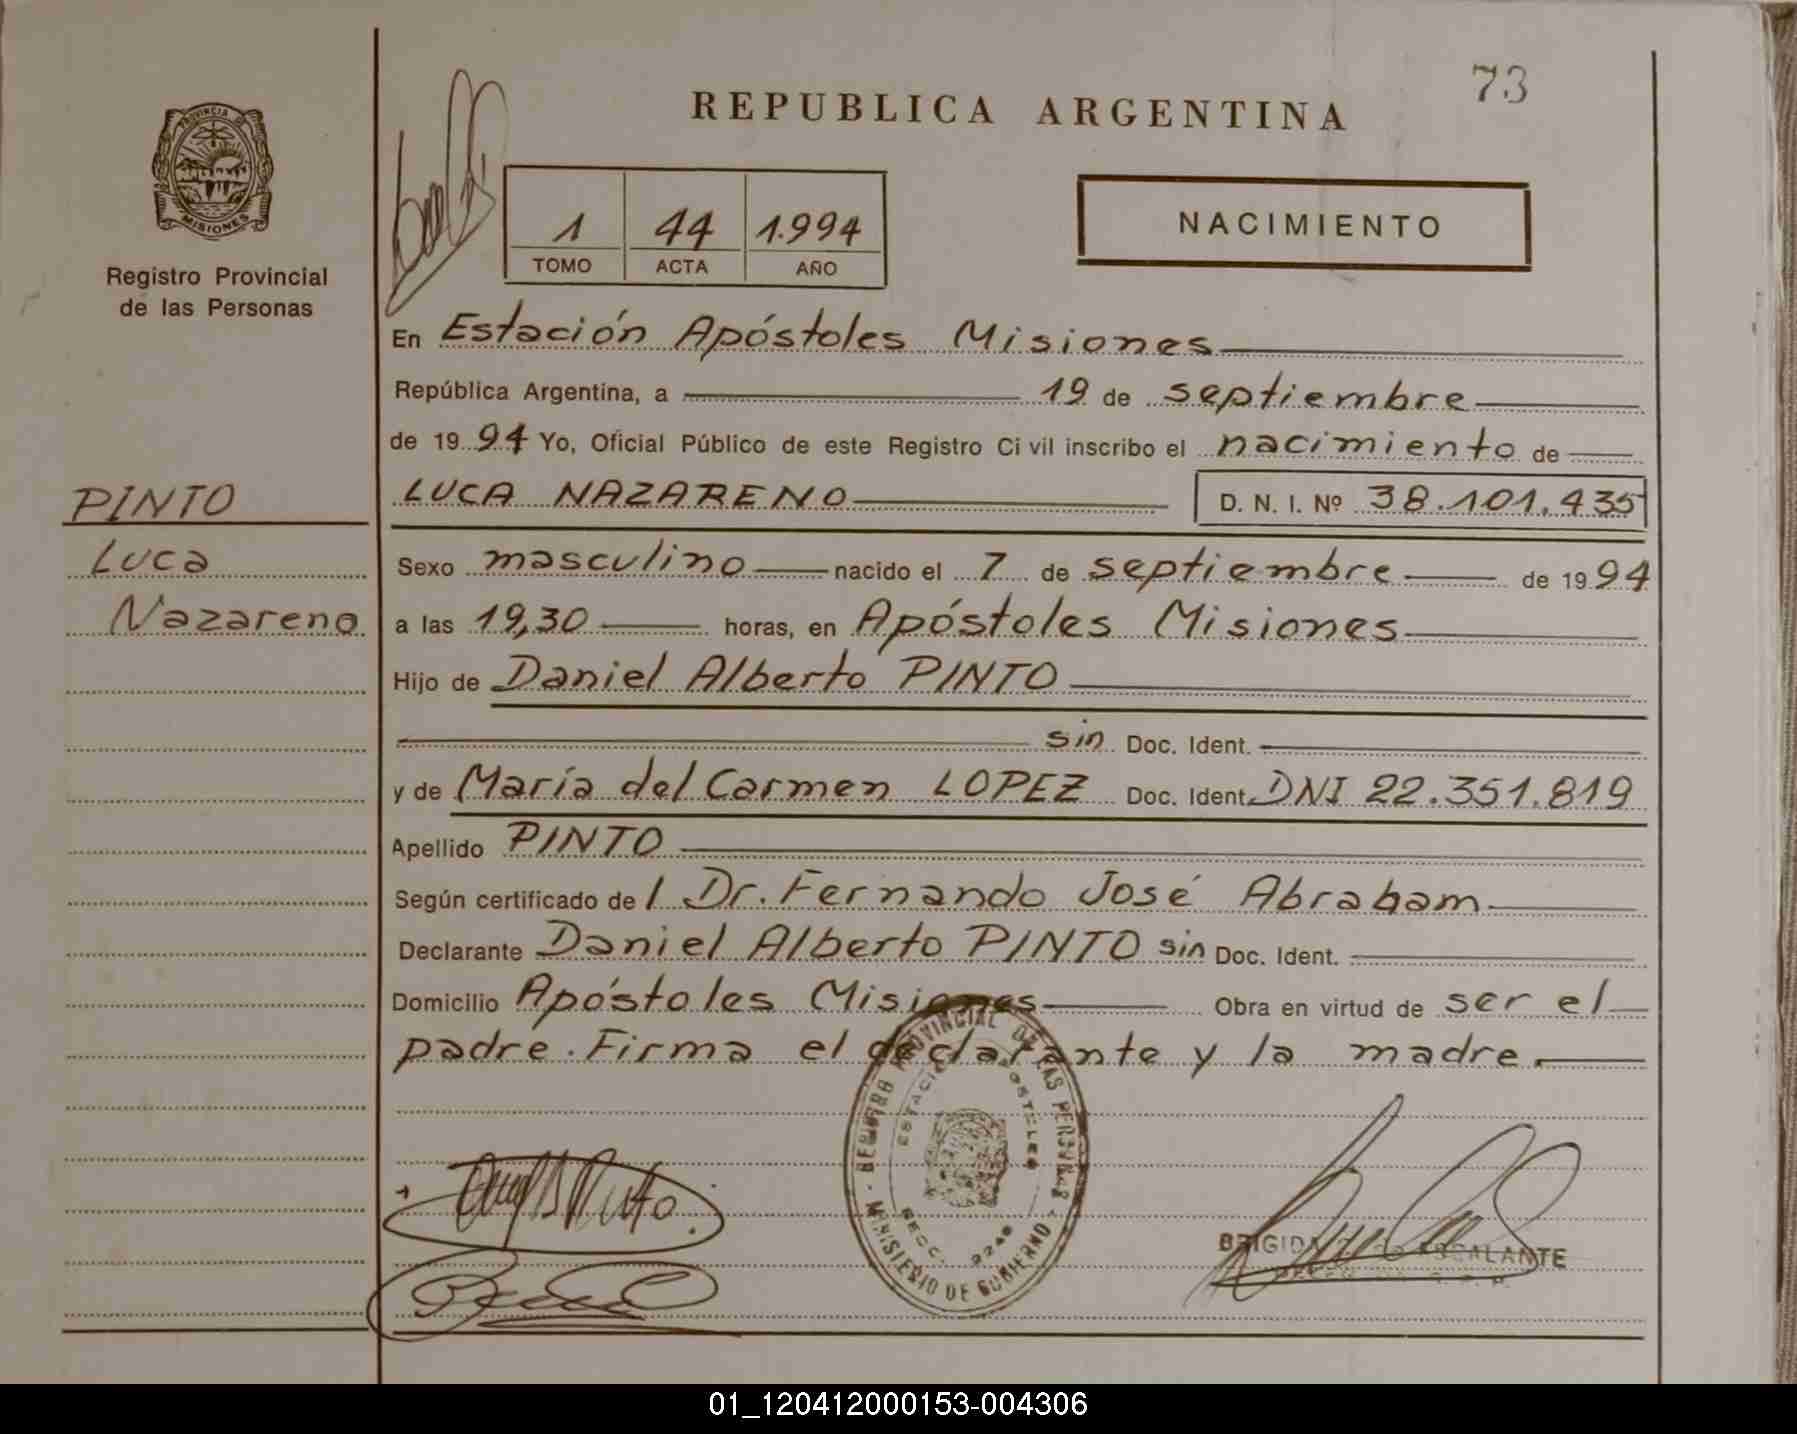 73
REPUBLICA ARGENTINA
PROVINCIA
MISIONES
Registro Provincial
de las Personas
1 44 1.994
TOMO ACTA AÑO
NACIMIENTO
En Estación Apóstoles Misiones
República Argentina, a 19 de septiembre
de 19 94 Yo, Oficial Público de este Registro Ci vil inscribo el nacimiento de
PINTO
LUCA NAZARENO D. N. I. Nº 38.101.435
Luca
Sexo masculino nacido el 7 de septiembre de 19 94
Nazareno
a las 19,30 horas, en Apóstoles Misiones
Hijo de Daniel Alberto PINTO
sin Doc. Ident.
y de María del Carmen LOPEZ Doc. Ident. DNI 22.351.819
Apellido PINTO
Según certificado de l Dr. Fernando José Abraham
Declarante Daniel Alberto PINTO sin Doc. Ident.
Domicilio Apóstoles Misiones Obra en virtud de ser el
padre. Firma el declarante y la madre.
REGISTRO PROVINCIAL DE LAS PERSONAS
MINISTERIO DE GOBIERNO
BRIGIDA ESCALANTE
01_120412000153-004306